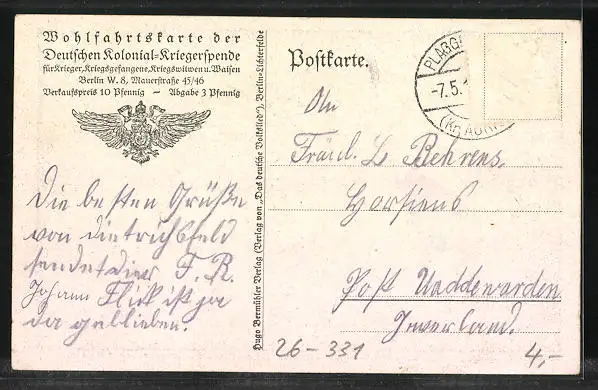 Wohlfahrtskarte der
Deutschen Kolonial-Kriegerspende
für Krieger, Kriegsgefangene, Kriegswitwen u. Waisen
Berlin W. 8, Mauerstraße 45/46
Verkaufspreis 10 Pfennig — Abgabe 3 Pfennig
Die besten Grüße
von Dietrichsfeld
sendet dier F. R.
Johann Flick ist ja
da geblieben.
Hugo Bermühler Verlag (Verlag von „Das deutsche Volkslied"), Berlin-Lichterfelde
Postkarte.
-7.5.1
An
Fräul. L Behrens.
Horsiens
Post Waddewarden
Jeverland.
26-331
4,-